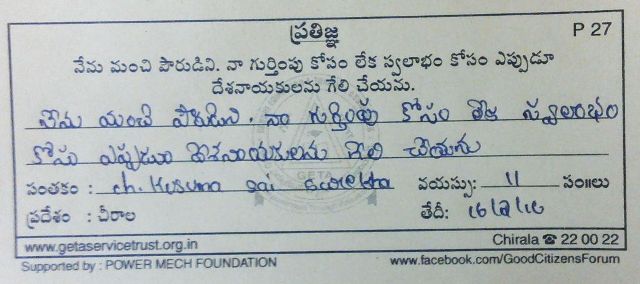 ప్రతిజ్ఞ
P 27
నేను మంచి పౌరుడిని. నా గుర్తింపు కోసం లేక స్వలాభం కోసం ఎప్పుడూ
దేశనాయకులను గేలి చేయను.
నేను మంచి పౌరుడిని. నా గుర్తింపు కోసం లేక స్వలాభం
కోసం ఎప్పుడూ దేశనాయకులను గేలి చేయను
సంతకం : ch. Kusuma sai వయస్సు: 11 సం॥లు
ప్రదేశం : చీరాల తేదీ:
GETA
www.getaservicetrust.org.in Chirala ☎ 22 00 22
Supported by : POWER MECH FOUNDATION www.facebook.com/GoodCitizensForum